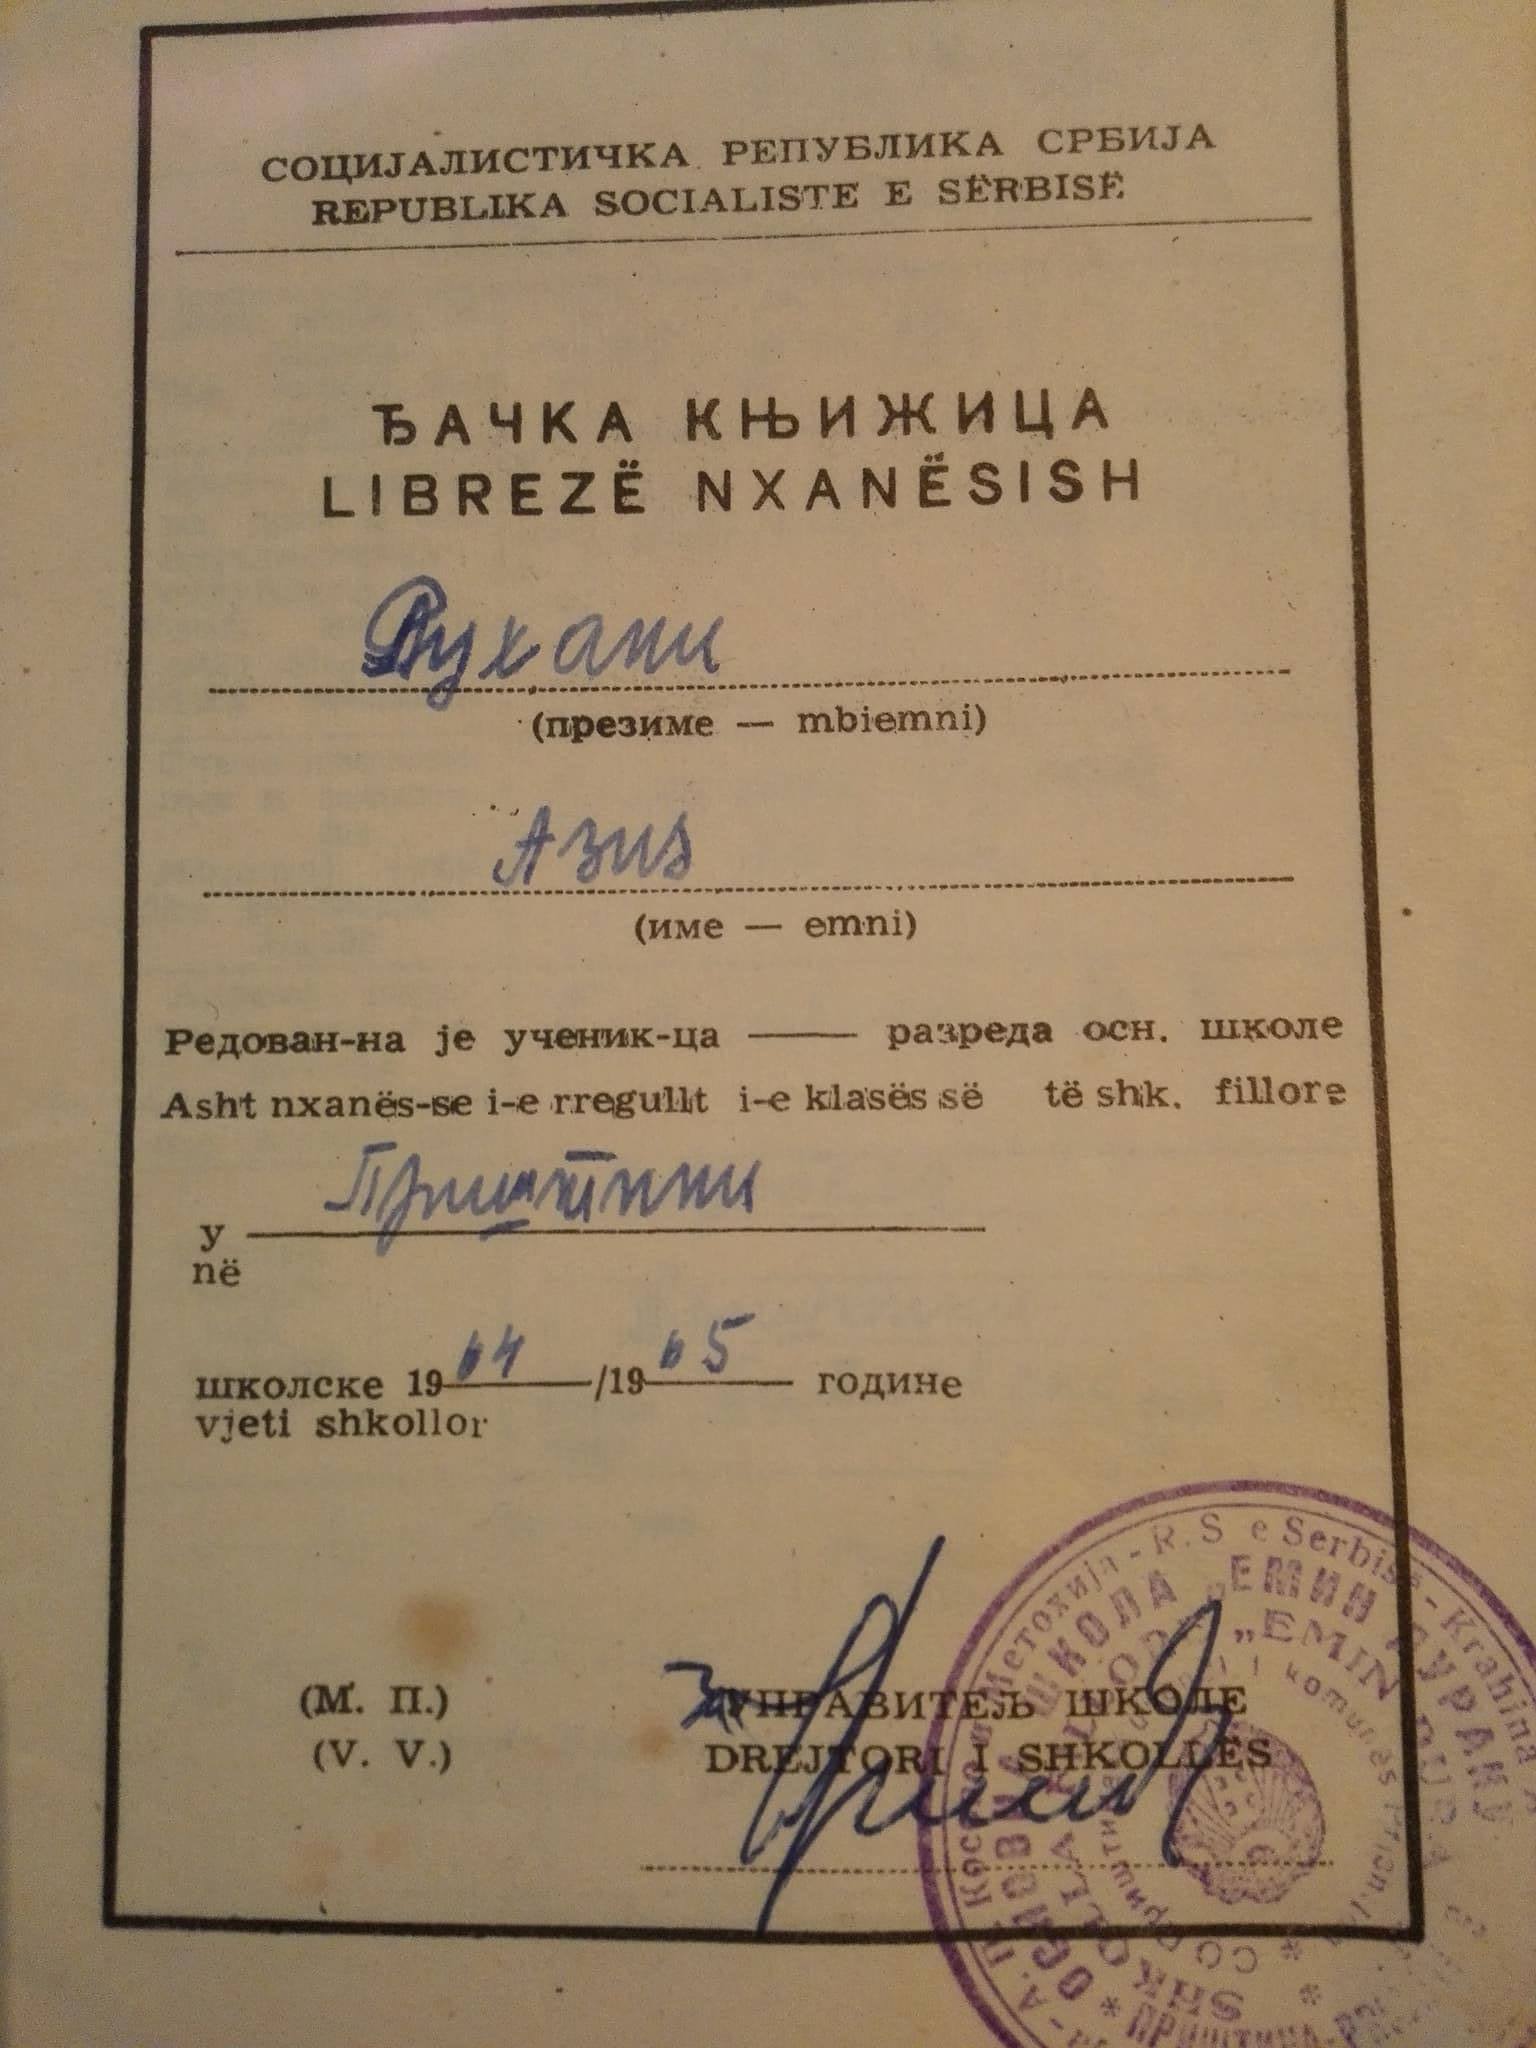 СОЦИЈАЛИСТИЧКА РЕПУБЛИКА СРБИЈА
REPUBLIKA SOCIALISTE E SËRBISË
ЂАЧКА КЊИЖИЦА
LIBREZË NXANËSISH
Вухани
(презиме — mbiemni)
Азиз
(име — emni)
Редован-на је ученик-ца —— разреда осн. школе
Asht nxanës-se i-e rregullt i-e klasës së të shk. fillore
у Приштини
në
школске 1964/1965 године
vjeti shkollor
(М. П.) За УПРАВИТЕЉ ШКОЛЕ
(V. V.) DREJTORI I SHKOLLËS
Метохија - R.S e Serbisë - Krahina
ОСНОВНА ШКОЛА „ЕМИН ДУРАКУ
SHKOLLA „EMIN
komunës
ПРИШТИНА